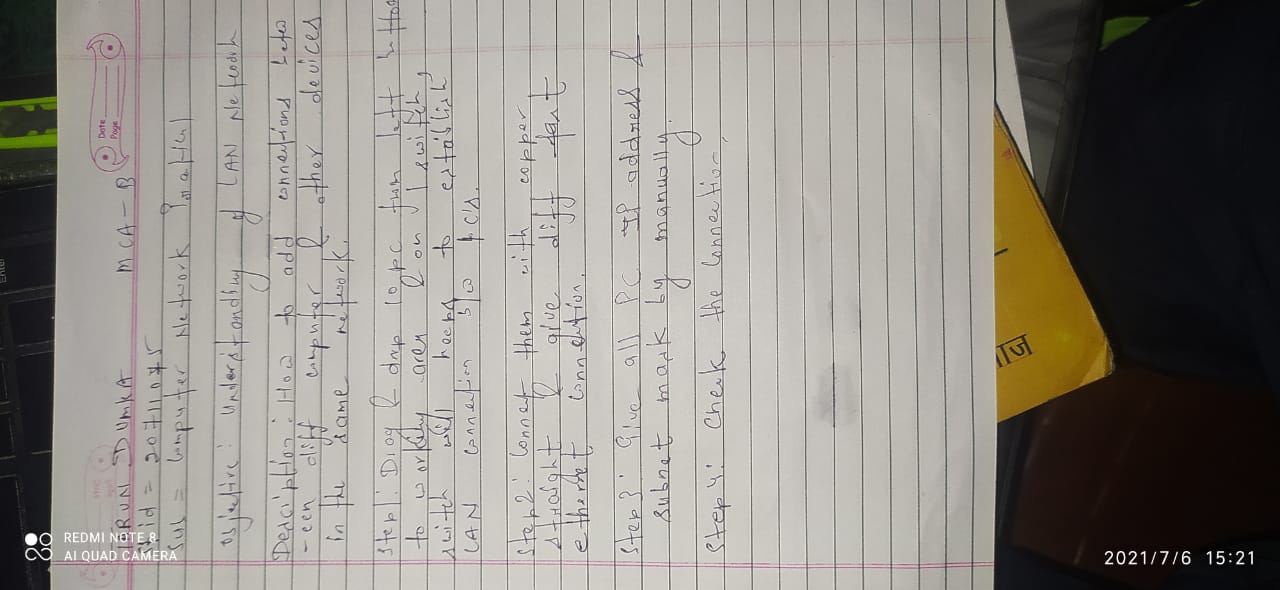 TARUN DUMKA MCA-B
Stuid = 20711075
Sub = Computer Network Practical
Date
Page
Objective: Understanding of LAN Network
Description: How to add connections betw
-een diff computer & other devices
in the same network.
Step 1: Drag & drop 10pc from left bottom
to working area & on 1 switch,
switch will helps to establish
LAN connection b/w PC's.
Step 2: Connect them with copper
straight & give diff fast
ethernet connection.
Step 3: Give all PC IP address &
subnet mask by manually.
Step 4: Check the connection.
Enter
REDMI NOTE 8
AI QUAD CAMERA
2021/7/6 15:21